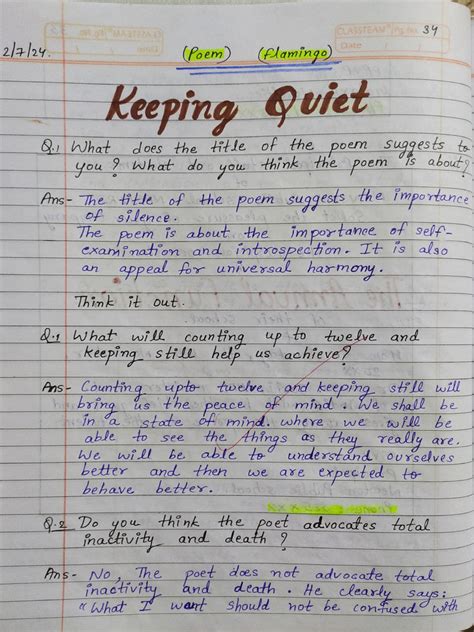 CLASSTEAM Pg No. 34
Date
2/7/24.
(Poem) (flamingo)
Keeping Quiet
Q.1 What does the title of the poem suggests to
you? What do you think the poem is about?
Ans- The title of the poem suggests the importance
of silence.
The poem is about the importance of self-
examination and introspection. It is also
an appeal for universal harmony.
Think it out.
Q.1 What will counting up to twelve and
keeping still help us achieve?
Ans- Counting upto twelve and keeping still will
bring us the peace of mind. We shall be
in a state of mind. where we will be
able to see the things as they really are.
We will be able to understand ourselves
better and then we are expected to
behave better.
Q.2 Do you think the poet advocates total
inactivity and death?
Ans- No, The poet does not advocate total
inactivity and death. He clearly says:
"What I want should not be confused with